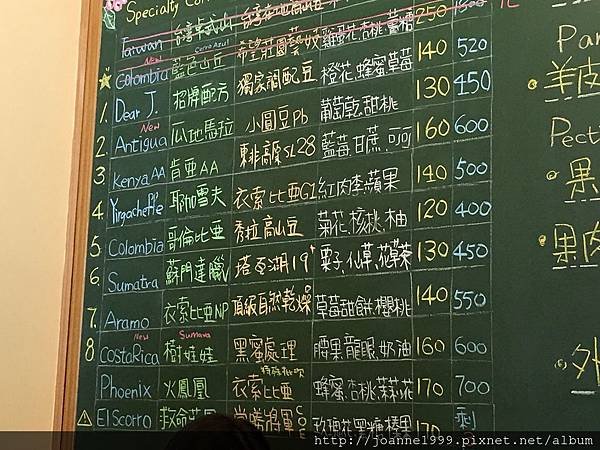 Specialty
Taiwan 台灣
New Cerro Azul
Colombia 藍色山丘 希望莊園藝妓 雞蛋花、杏桃、蔗糖 250
Dear J. 招牌配方 獨家調配豆 橙花、蜂蜜、草莓 140 520
New
1. Antigua 瓜地馬拉 小圓豆Pb 葡萄乾、甜桃 130 450
2. Kenya AA 肯亞AA 東非高原SL28 藍莓、甘蔗、可可 160 600
3. Yirgacheffe 耶加雪夫 衣索比亞G1 紅肉李、蘋果 140 500
4. Colombia 哥倫比亞 秀拉高山豆 菊花、核桃、柚 120 400
5. Sumatra 蘇門達臘 塔瓦湖19+ 栗子、仙草、花草茶 130 450
6. Aramo 衣索比亞NP 頂級自然乾燥 草莓甜餅、櫻桃 140 550
7. New Sumava
CostaRica 樹娃娃 黑蜜處理 腰果、龍眼、奶油 160 600
8. Phoenix 火鳳凰 衣索比亞 蜂蜜、杏桃、茉莉花 170 700
El Scorro 救命莊園 將軍 玫瑰花、黑糖、榛果 170 剩
Pa
羊皮
Pecti
果
果肉
外
http://joanne1999.pixnet.net/album